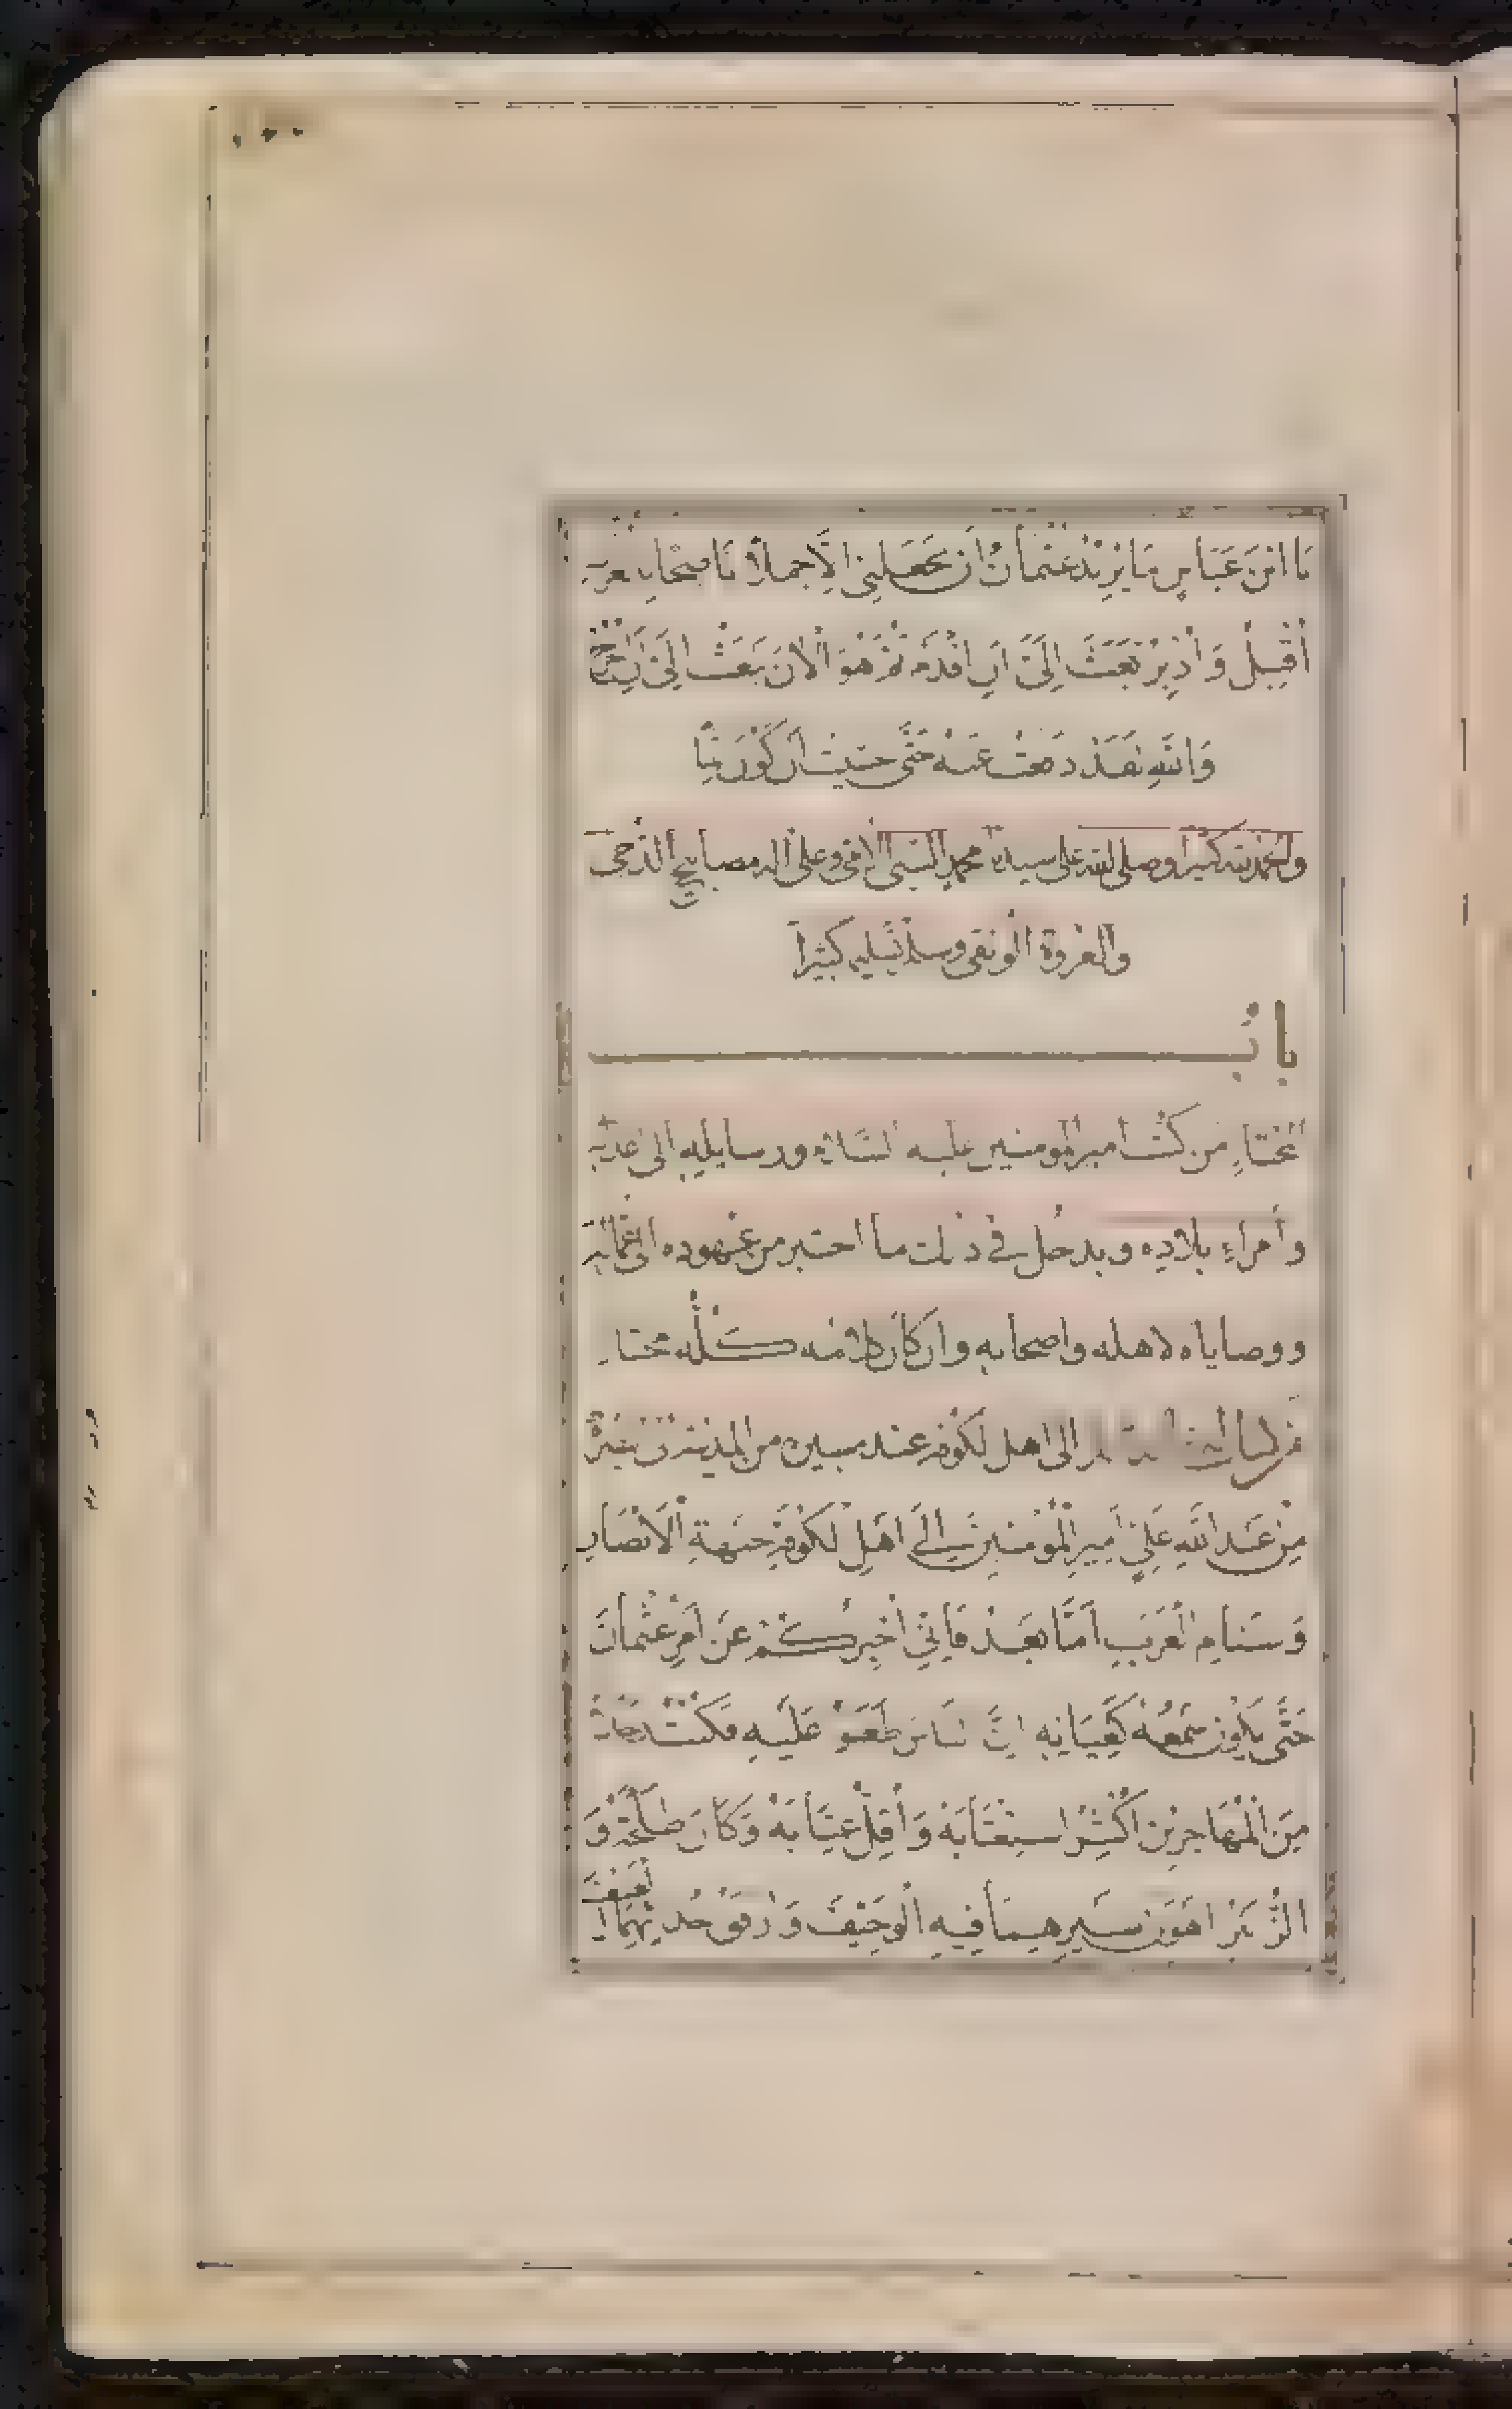 يَا ابْنَ عَبَّاسٍ مَا يُرِيدُ عُثْمَانُ أَنْ يَجْعَلَنِي إِلَّا جَمَلًا نَاضِحًا بِالْغَرْبِ
أَقْبِلْ وَأَدْبِرْ بَعَثَ إِلَيَّ أَنْ أَقْدَمَ ثُمَّ هُوَ الْآنَ يَبْعَثُ إِلَيَّ أَنْ أَخْرُجَ
وَاللَّهِ لَقَدْ دَفَعْتُ عَنْهُ حَتَّى خَشِيتُ أَنْ أَكُونَ آثِمًا
والحمد لله كثيرا وصلى الله على سيدنا محمد النبي الامي وعلى آله مصابيح الدجى
والعروة الوثقى وسلم تسليما كثيرا
باب
المختار من كتب امير المومنين عليه السلام ورسايله الى اعدائه
وأمراء بلاده ويدخل في ذلك ما اختير من عهوده الى عماله
ووصاياه لاهله واصحابه وان كان كلامه كله مختارا
الى اهل الكوفة عند مسيره من المدينة الى البصرة
مِنْ عَبْدِ اللَّهِ عَلِيٍّ أَمِيرِ الْمُؤْمِنِينَ إِلَى أَهْلِ الْكُوفَةِ جَبْهَةِ الْأَنْصَارِ
وَسَنَامِ الْعَرَبِ أَمَّا بَعْدُ فَإِنِّي أُخْبِرُكُمْ عَنْ أَمْرِ عُثْمَانَ
حَتَّى يَكُونَ سَمْعُهُ كَعِيَانِهِ إِنَّ النَّاسَ طَعَنُوا عَلَيْهِ فَكُنْتُ رَجُلًا
مِنَ الْمُهَاجِرِينَ أُكْثِرُ اسْتِعْتَابَهُ وَأُقِلُّ عِتَابَهُ وَكَانَ طَلْحَةُ وَ
الزُّبَيْرُ أَهْوَنُ سَيْرِهِمَا فِيهِ الْوَجِيفُ وَأَرْفَقُ حُدَائِهِمَا الْعَنِيفُ